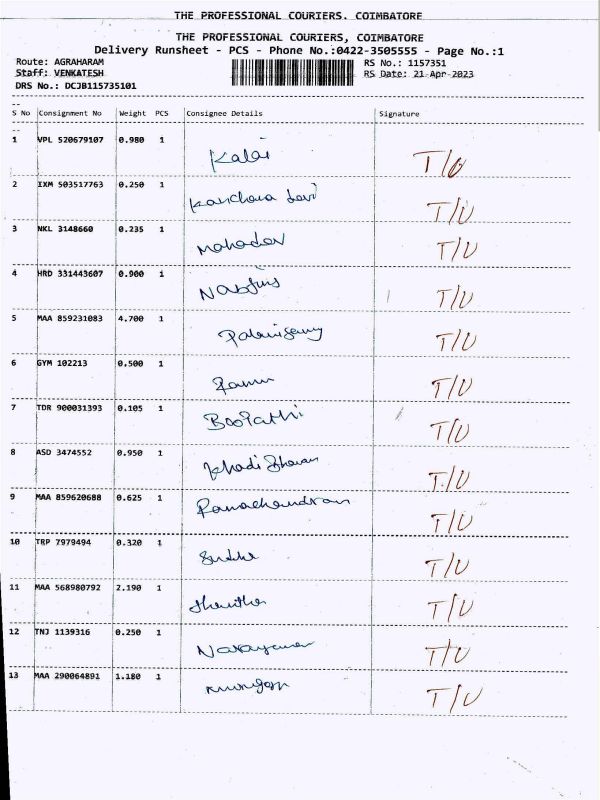 THE PROFESSIONAL COURIERS. COIMBATORE
THE PROFESSIONAL COURIERS, COIMBATORE
Delivery Runsheet - PCS - Phone No.:0422-3505555 - Page No.:1
Route: AGRAHARAM RS No.: 1157351
Staff: VENKATESH RS Date: 21-Apr-2023
DRS No.: DCJB115735101
S No Consignment No Weight PCS Consignee Details Signature
1 VPL 520679107 0.980 1 Kalai T/U
2 IXM 503517763 0.250 1 Kanchana Devi T/U
3 NKL 3148660 0.235 1 Mahadev T/U
4 HRD 331443607 0.900 1 T/U
5 MAA 859231083 4.700 1 Palanisamy T/U
6 GYM 102213 0.500 1 Ramu T/U
7 TDR 900031393 0.105 1 Boopathi T/U
8 ASD 3474552 0.950 1 T/U
9 MAA 859620688 0.625 1 Ramachandran T/U
10 TRP 7979494 0.320 1 T/U
11 MAA 568980792 2.190 1 T/U
12 TNJ 1139316 0.250 1 Narayanan T/U
13 MAA 290064891 1.180 1 Murugan T/U